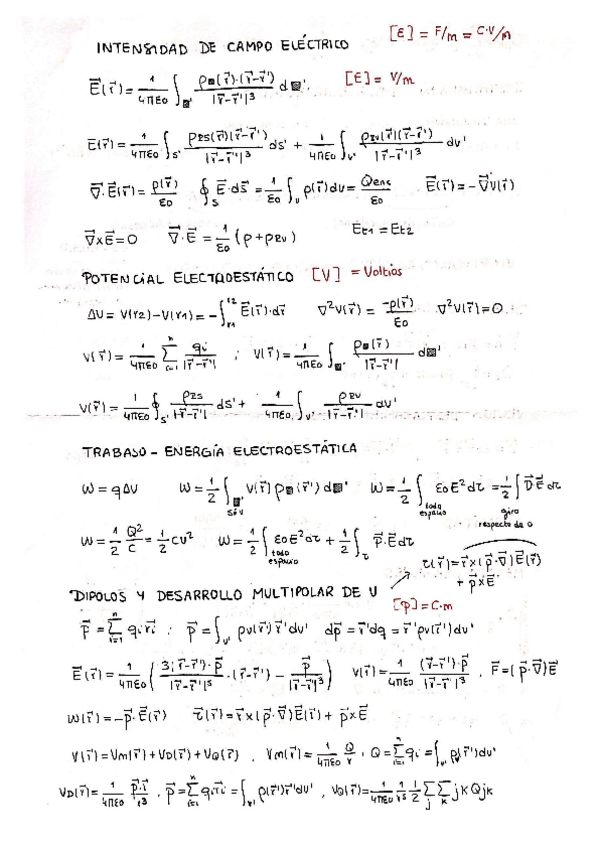 INTENSIDAD DE CAMPO ELÉCTRICO [ε] = F/m = C·V/m
E⃗(r⃗) = 1/4πε0 ∫■' ρ■(r⃗')·(r⃗-r⃗')/|r⃗-r⃗'|³ d■' [E] = V/m
E(r⃗) = 1/4πε0 ∫S' ρPS(r⃗')(r⃗-r⃗')/|r⃗-r⃗'|³ ds' + 1/4πε0 ∫V' ρPV(r⃗')(r⃗-r⃗')/|r⃗-r⃗'|³ dv'
∇⃗·E⃗(r⃗) = ρ(r⃗)/ε0 ∮S E⃗·ds⃗ = 1/ε0 ∫V ρ(r⃗)dv = Qenc/ε0 E⃗(r⃗) = -∇⃗V(r⃗)
∇⃗xE⃗ = 0 ∇⃗·E⃗ = 1/ε0 (ρ+ρPV) Et1 = Et2
POTENCIAL ELECTROESTÁTICO [V] = Voltios
ΔU = V(r2)-V(r1) = -∫r1 r2 E⃗(r⃗)·dr⃗ ∇²V(r⃗) = -ρ(r⃗)/ε0 ∇²V(r⃗) = 0
V(r⃗) = 1/4πε0 Σ i=1 n qi/|r⃗-r⃗'| ; V(r⃗) = 1/4πε0 ∫■' ρ■(r⃗)/|r⃗-r⃗'| d■'
V(r⃗) = 1/4πε0 ∮S' ρPS/|r⃗-r⃗'| ds' + 1/4πε0 ∫V' ρPV/|r⃗-r⃗'| dv'
TRABAJO - ENERGÍA ELECTROESTÁTICA
W = qΔU W = 1/2 ∫■' V(r⃗) ρ■(r⃗') d■' W = 1/2 ∫ ε0E²dτ = 1/2 ∫ D⃗E⃗ dτ
todo espacio giro respecto de 0
W = 1/2 Q²/C = 1/2 CV² W = 1/2 ∫ todo espacio ε0E²dτ + 1/2 ∫τ P⃗·E⃗dτ
τ(r⃗) = r⃗x(p⃗·∇⃗)E⃗(r⃗) + p⃗xE⃗
DIPOLOS Y DESARROLLO MULTIPOLAR DE V [p] = C·m
p⃗ = Σ i=1 n qi r⃗i ; p⃗ = ∫V' ρv(r⃗')r⃗'dv' dp⃗ = r⃗'dq = r⃗'ρv(r⃗')dv'
E⃗(r⃗) = 1/4πε0 ( 3(r⃗-r⃗')·p⃗/|r⃗-r⃗'|⁵ ·(r⃗-r⃗') - p⃗/|r⃗-r⃗'|³ ) V(r⃗) = 1/4πε0 (r⃗-r⃗')·p⃗/|r⃗-r⃗'|³ , F⃗ = (p⃗·∇⃗)E⃗
W(r⃗) = -p⃗·E⃗(r⃗) τ⃗(r⃗) = r⃗x(p⃗·∇⃗)E⃗(r⃗) + p⃗xE⃗
V(r⃗) = VM(r⃗)+VD(r⃗)+VQ(r⃗) , VM(r⃗) = 1/4πε0 Q/r , Q = Σ i=1 n qi = ∫V' ρ(r⃗')dv'
VD(r⃗) = 1/4πε0 p⃗·r⃗/r³ , p⃗ = Σ i=1 n qi r⃗i = ∫V' ρ(r⃗')r⃗'dv' , VQ(r⃗) = 1/4πε0 1/r⁵ 1/2 Σj Σk jkQjk